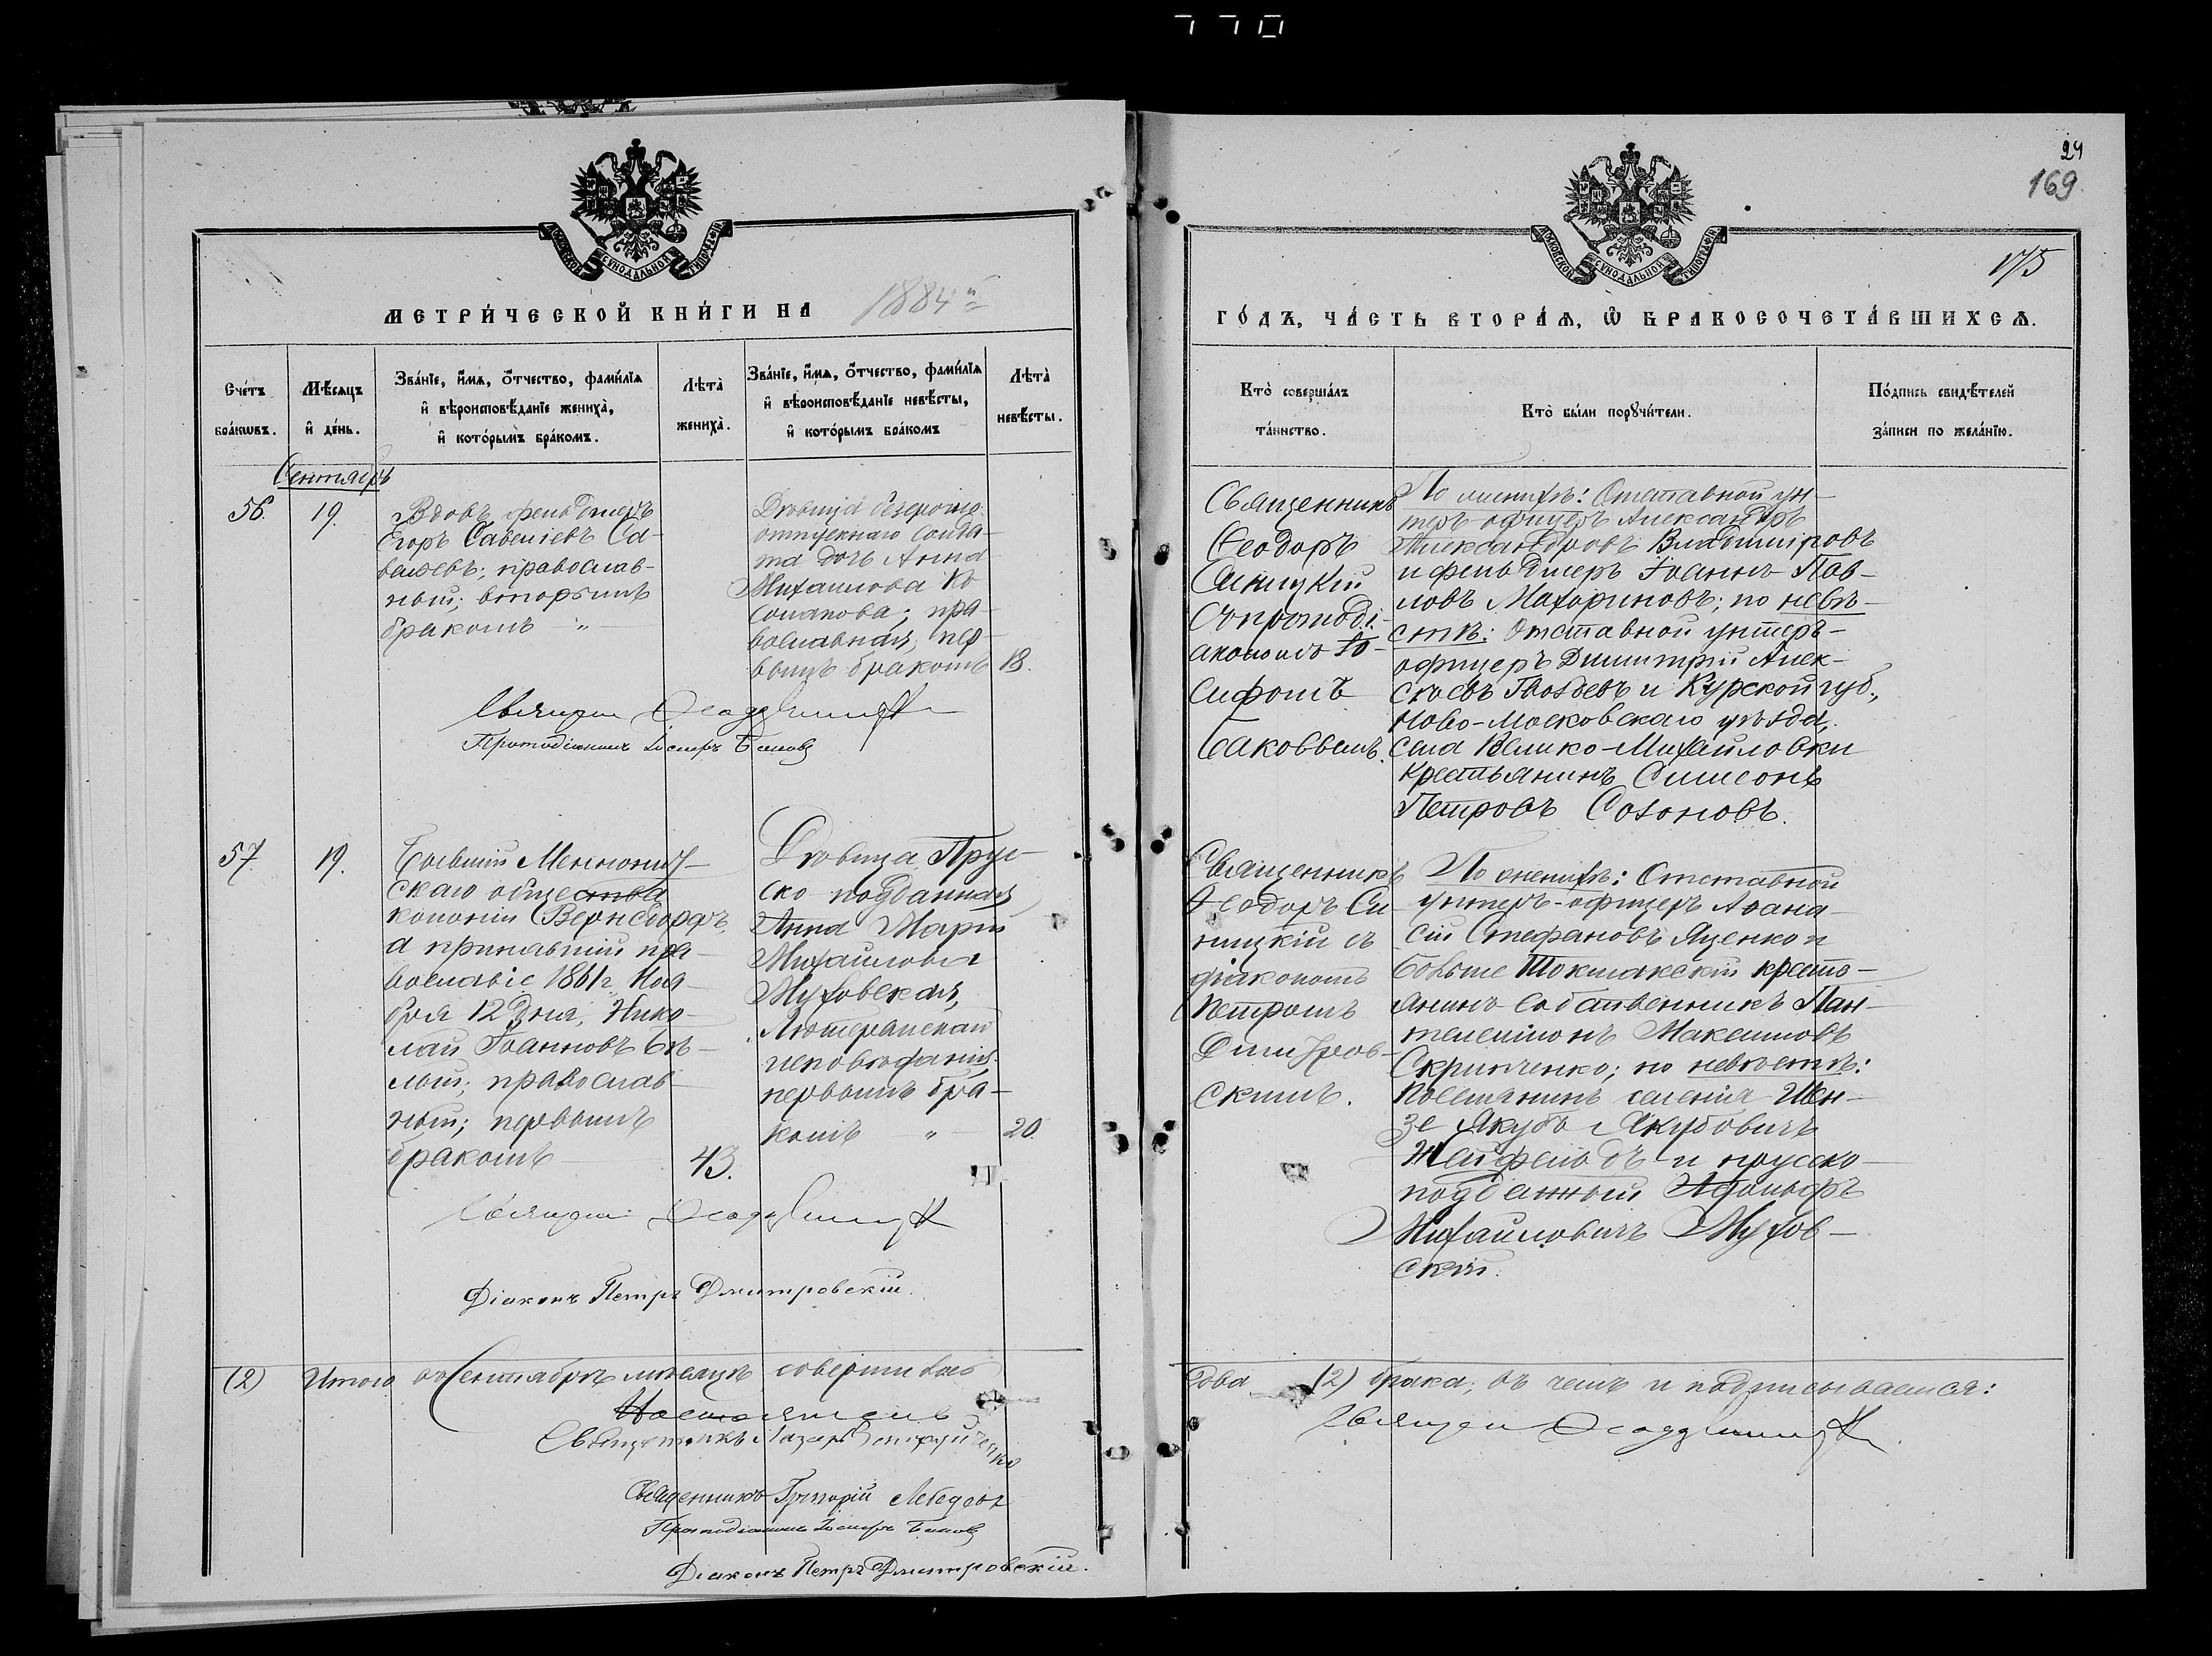 770
24
169
175
МОСКОВСКОЙ СѴНОДАЛЬНОЙ ТИПОГРАФІИ
МОСКОВСКОЙ СѴНОДАЛЬНОЙ ТИПОГРАФІИ
МЕТРИ́ЧЕСКОЙ КНИ́ГИ НА 1884й
ГО́ДЪ, ЧА́СТЬ ВТОРА́Ѧ, Ѡ БРАКОСОЧЕТА́ВШИХСѦ.
Сче́тъ
бра́кѡвъ.
Мѣ́сяцъ
и҆ де́нь.
Зва́нїе, и҆́мѧ, ѻ҆́тчество, фами́лїѧ
и҆ вѣроисповѣ́данїе жениха̀,
и҆ кото́рымъ бра́комъ.
Лѣта̀
жениха̀.
Зва́нїе, и҆́мѧ, ѻ҆́тчество, фами́лїѧ
и҆ вѣроисповѣ́данїе невѣ́сты,
и҆ кото́рымъ бра́комъ
Лѣта̀
невѣ́сты.
Кто̀ соверша́лъ
та́инство.
Кто̀ бы́ли порꙋчи́тели.
По́дпись свидѣ́телей
за́писи по жела́нїю.
Сентябрь
56.
19.
Вдовъ фельдшеръ
Егоръ Савеліевъ Са-
вельевъ; православ-
ный; вторымъ
бракомъ — „ —
Дѣвица безсрочно
отпускнаго солда-
та дочь Анна
Михаилова Ко
солапова; пра-
вославная, пер-
вымъ бракомъ
18.
Священникъ
Ѳеодоръ
Синицкій
съ протоді-
акономъ Іо-
сифомъ
Баковымъ.
По женихѣ: Отставной ун-
теръ-офицеръ Александръ
Александровъ Владиміровъ
и фельдшеръ Іоаннъ Пав-
ловъ Махориновъ; по невѣ-
стѣ: Отставной унтеръ-
офицеръ Димитрій Алек-
сѣевъ Гвоздевъ и Курской губ.,
Ново-Московскаго уѣзда,
села Велико-Михайловки
крестьянинъ Симеонъ
Петровъ Созоновъ.
Священникъ Ѳеодоръ Синицкій
Протодіаконъ Іосифъ Баковъ
57
19.
Бывшій Менонит-
скаго общества
колоніи Вернсдорфъ,
а принявшій пра-
вославіе 1861г. Ноя-
бря 12 дня, Нико-
лай Іоанновъ Бѣ-
лый; православ-
ный; первымъ
бракомъ —
43.
Дѣвица Прус-
ско подданная
Анна Марія
Михаиловна
Муховская,
Лютеранскаго
исповѣданія,
первымъ бра-
комъ — „ —
20.
Священникъ
Ѳеодоръ Си-
ницкій съ
діакономъ
Петромъ
Димитров-
скимъ.
По женихѣ: Отставной
унтеръ-офицеръ Аѳана-
сій Стефановъ Яценко и
больше Токмакскій кресть-
янинъ собственникъ Пан-
телеимонъ Максимовъ
Скрипченко; по невѣстѣ:
поселянинъ селенія Шен-
зе Якубъ Якубовичъ
Жейфельдъ и прусско-
подданный Адольфъ
Михаиловичъ Мухов-
скій.
Священникъ Ѳеодоръ Синицкій
Діаконъ Петръ Дмитровскій.
(2) Итого въ Сентябрѣ мѣсяцѣ совершилось
два (2) брака; въ чемъ и подписываемся:
Священникъ Ѳеодоръ Синицкій
Настоятель
Священникъ Лазарь
Священникъ Григорій Лебедевъ
Протодіаконъ Іосифъ Баковъ
Діаконъ Петръ Дмитровскій.